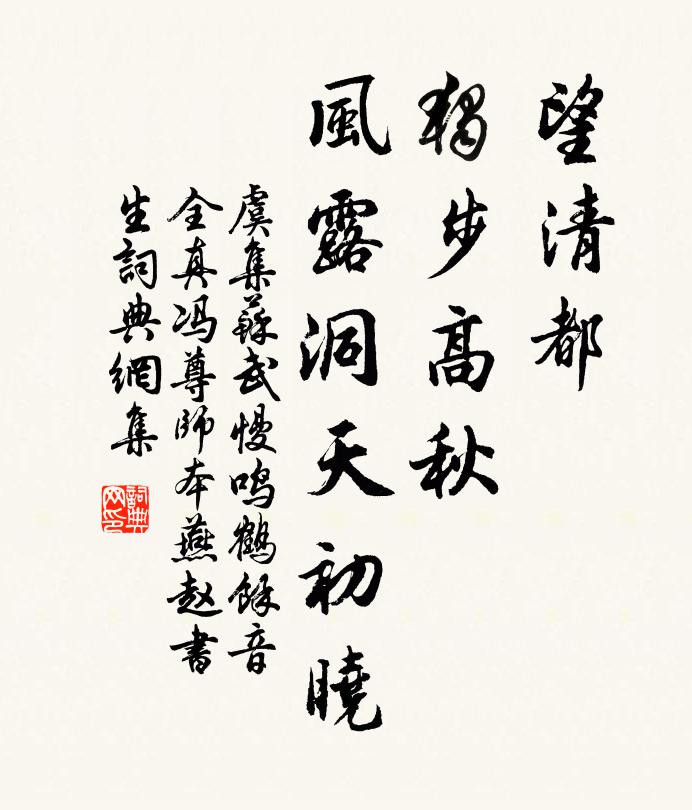 望清都
獨步高秋
風露洞天初曉
虞集蘇武慢鳴鶴餘音
全真冯尊師本燕赵書
生詞典網集
詞典
网印